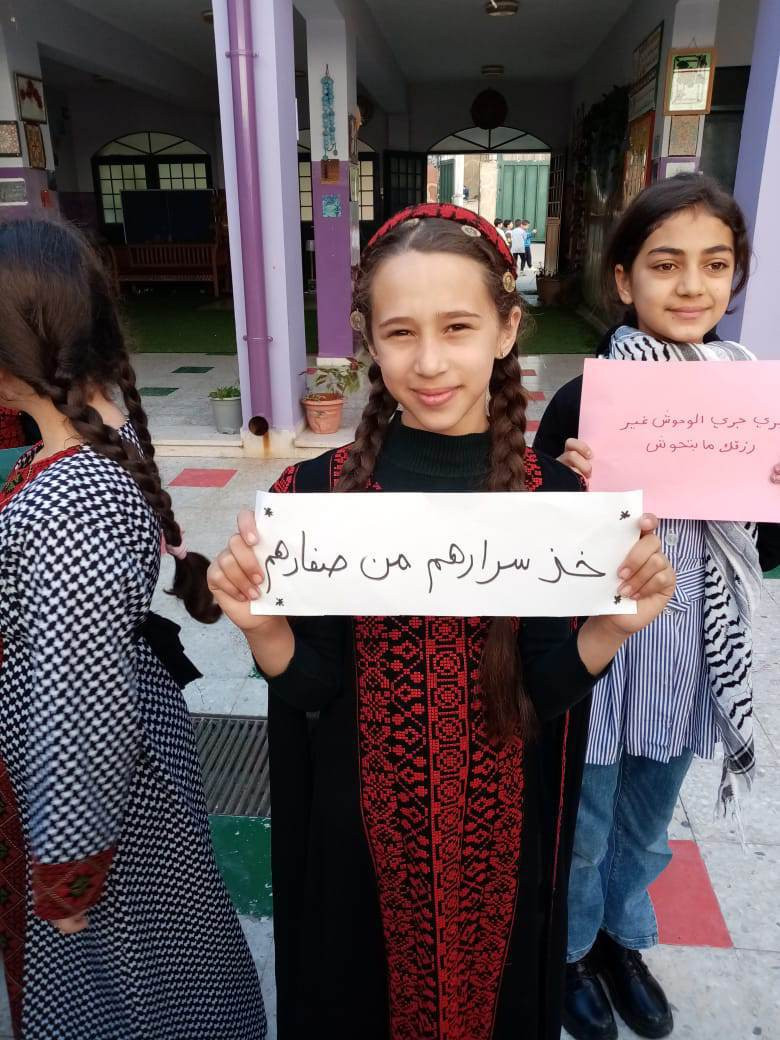 خذ سرارهم من صغارهم
جري جري الوحوش غير
رزقك ما بتحوش